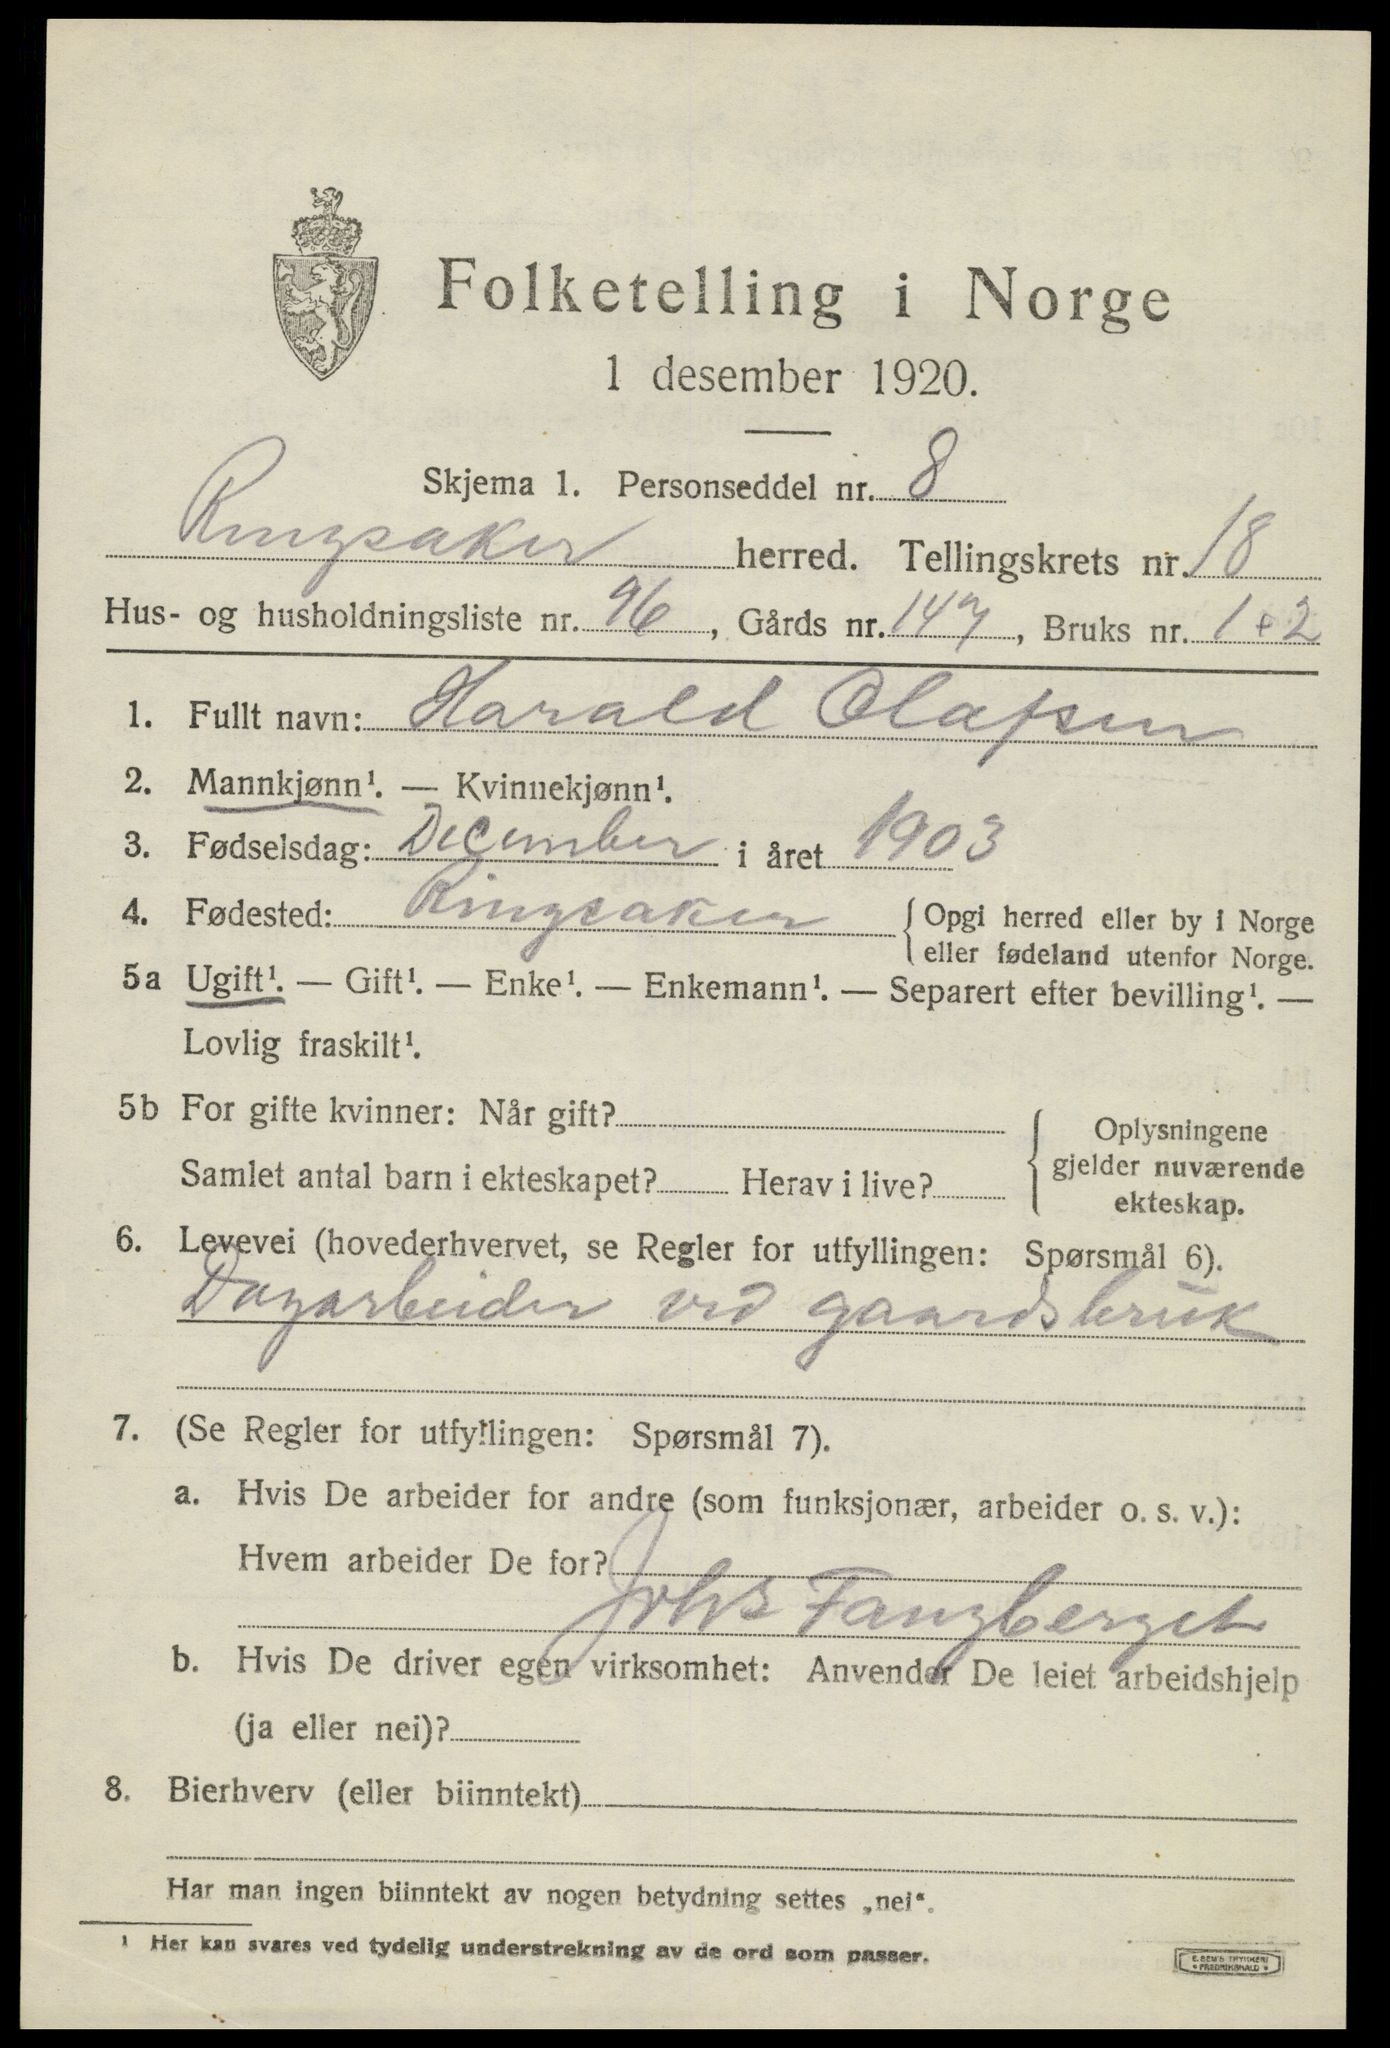 Folketelling i Norge
1 desember 1920.
Skjema 1. Personseddel nr. 8
Ringsaker herred. Tellingskrets nr. 18
Hus- og husholdningsliste nr. 96, Gårds nr. 147, Bruks nr. 1+2
1. Fullt navn: Harald Olafsen
2. Mannkjønn¹. — Kvinnekjønn¹.
3. Fødselsdag: December i året 1903
4. Fødested: Ringsaker { Opgi herred eller by i Norge
eller fødeland utenfor Norge.
5a Ugift¹. — Gift¹. — Enke¹. — Enkemann¹. — Separert efter bevilling¹. —
Lovlig fraskilt¹.
5b For gifte kvinner: Når gift?
Samlet antal barn i ekteskapet? Herav i live?
{ Oplysningene
gjelder nuværende
ekteskap.
6. Levevei (hovederhvervet, se Regler for utfyllingen: Spørsmål 6).
Dagarbeider ved gaardsbruk
7. (Se Regler for utfyllingen: Spørsmål 7).
a. Hvis De arbeider for andre (som funksjonær, arbeider o. s. v.):
Hvem arbeider De for?
Johs Fangberget
b. Hvis De driver egen virksomhet: Anvender De leiet arbeidshjelp
(ja eller nei)?
8. Bierhverv (eller biinntekt)
Har man ingen biinntekt av nogen betydning settes „nei“.
¹ Her kan svares ved tydelig understrekning av de ord som passer.
E. SEM'S TRYKKERI
• FREDRIKSHALD •